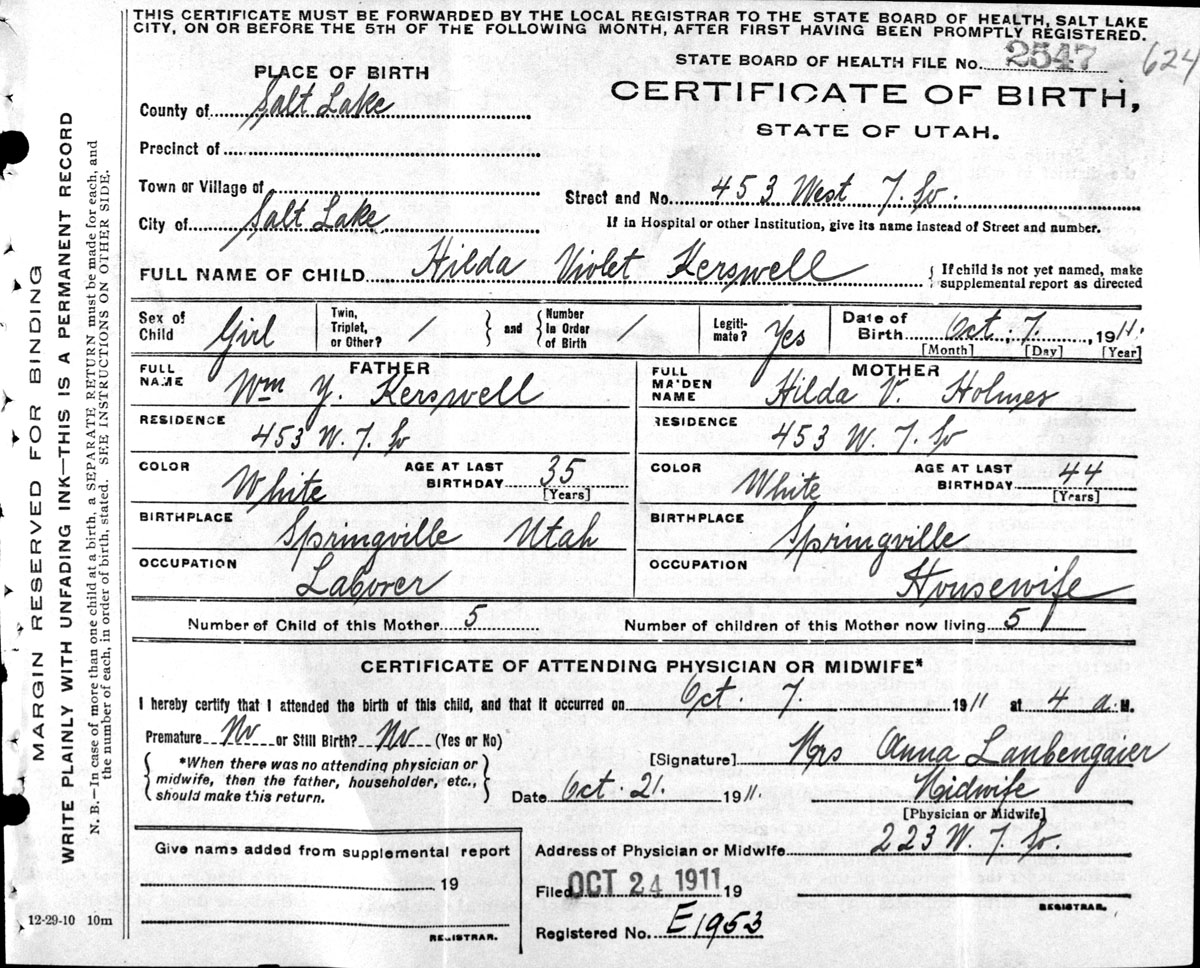 THIS CERTIFICATE MUST BE FORWARDED BY THE LOCAL REGISTRAR TO THE STATE BOARD OF HEALTH, SALT LAKE
CITY, ON OR BEFORE THE 5TH OF THE FOLLOWING MONTH, AFTER FIRST HAVING BEEN PROMPTLY REGISTERED.
STATE BOARD OF HEALTH FILE No. 2547 624
CERTIFICATE OF BIRTH,
STATE OF UTAH.
PLACE OF BIRTH
County of Salt Lake
Precinct of
Town or Village of
City of Salt Lake
Street and No. 453 West 7. So.
If in Hospital or other Institution, give its name instead of Street and number.
FULL NAME OF CHILD Hilda Violet Kerswell
{ If child is not yet named, make
supplemental report as directed
Sex of Child Girl
Twin, Triplet, or Other? /
and
Number in Order of Birth /
Legiti-mate? Yes
Date of Birth Oct, 7, 1911.
[Month] [Day] [Year]
FATHER
FULL NAME Wm Y. Kerswell
RESIDENCE 453 W. 7. So
COLOR White
AGE AT LAST BIRTHDAY 35
[Years]
BIRTHPLACE Springville Utah
OCCUPATION Laborer
MOTHER
FULL MAIDEN NAME Hilda V. Holmes
RESIDENCE 453 W. 7. So
COLOR White
AGE AT LAST BIRTHDAY 44
[Years]
BIRTHPLACE Springville
OCCUPATION Housewife
Number of Child of this Mother 5
Number of children of this Mother now living 5
CERTIFICATE OF ATTENDING PHYSICIAN OR MIDWIFE*
I hereby certify that I attended the birth of this child, and that it occurred on Oct. 7. 1911 at 4 a. M.
Premature No or Still Birth? No (Yes or No)
*When there was no attending physician or
midwife, then the father, householder, etc.,
should make this return.
[Signature] Mrs Anna Laubengaier
Date Oct. 21. 1911. Midwife
[Physician or Midwife]
Address of Physician or Midwife 223 W. 7. So.
Give name added from supplemental report
19
REGISTRAR.
Filed OCT 24 1911 19
REGISTRAR.
Registered No. E1953
12-29-10 10m
MARGIN RESERVED FOR BINDING
WRITE PLAINLY WITH UNFADING INK—THIS IS A PERMANENT RECORD
N. B.—In case of more than one child at a birth, a SEPARATE RETURN must be made for each, and
the number of each, in order of birth, stated. SEE INSTRUCTIONS ON OTHER SIDE.